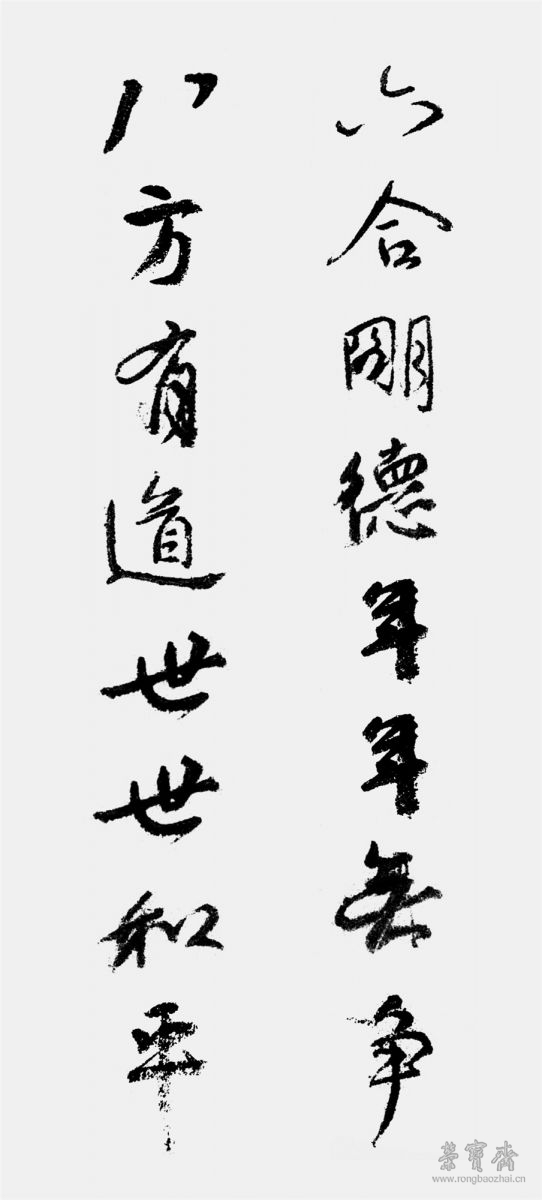 六合朙德年年無争
八方有道世世和平
榮寶齋
www.rongbaozhai.cn